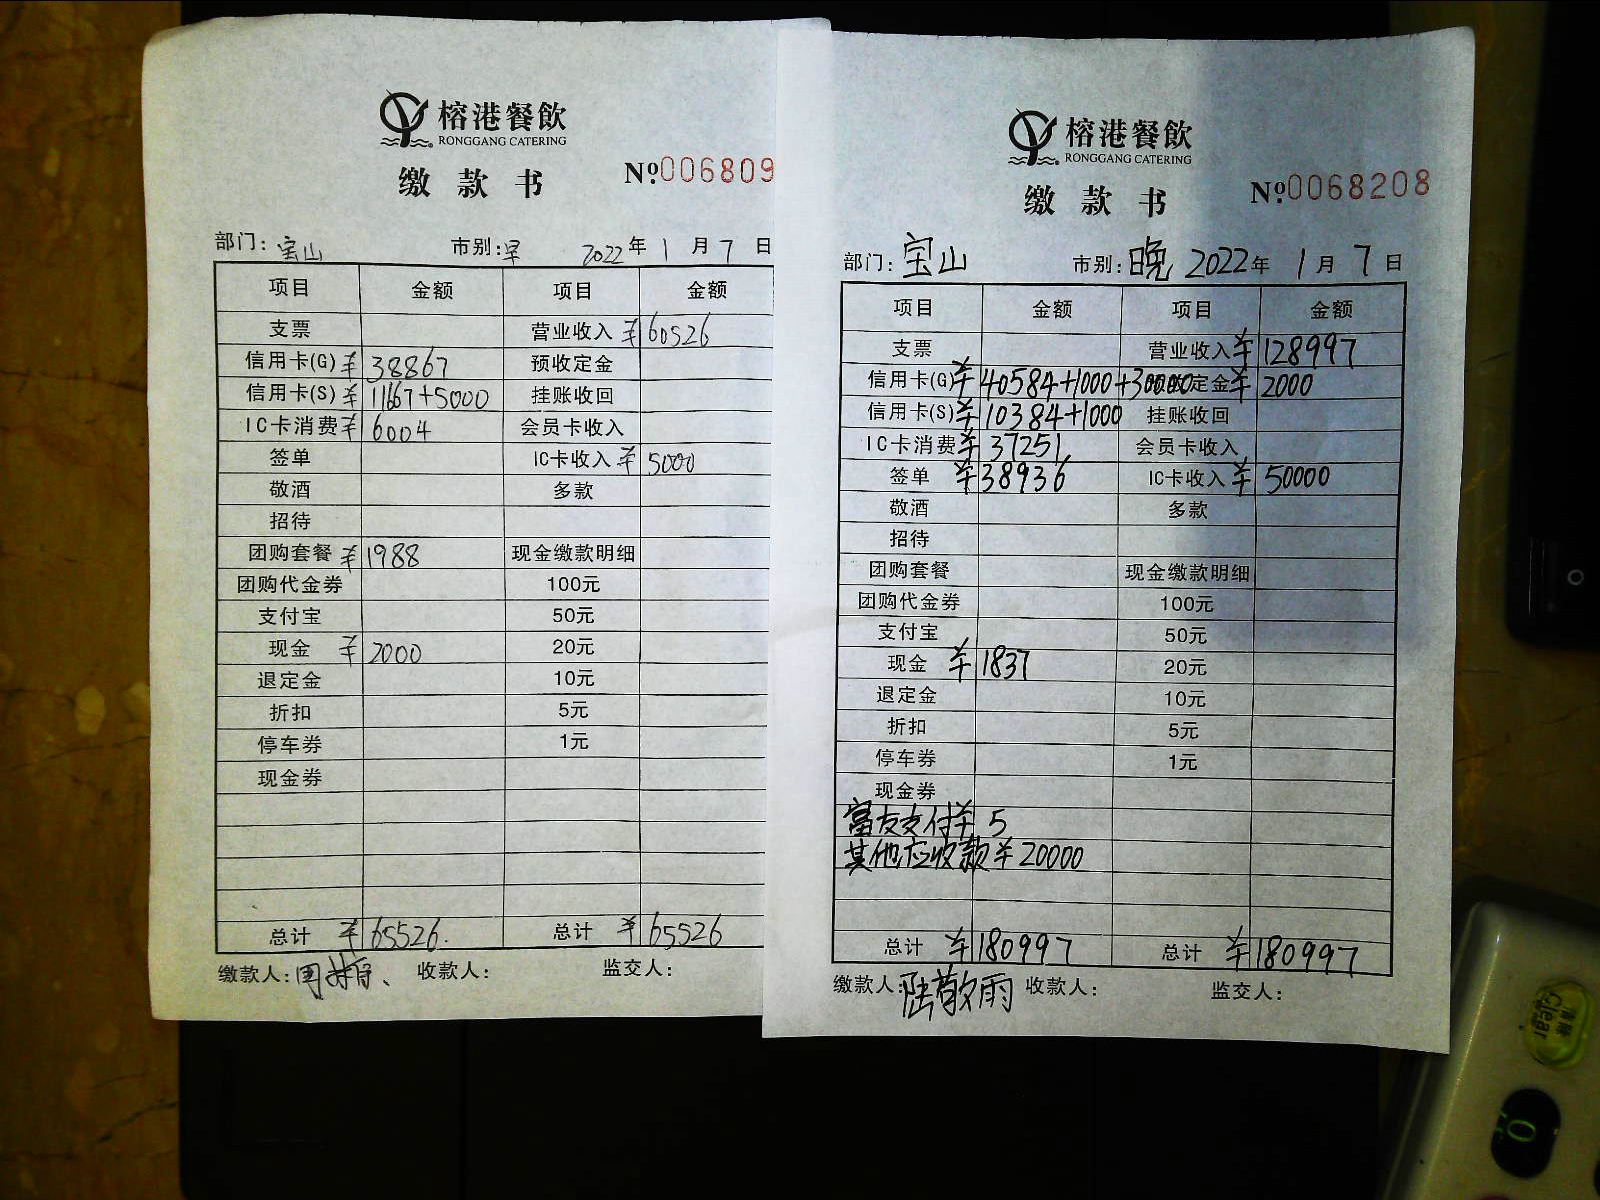 榕港餐飲
RONGGANG CATERING
缴款书 №006809
部门：宝山 市别：早 2022年1月7日
项目 金额 项目 金额
支票 营业收入 ¥60526
信用卡(G) ¥38867 预收定金
信用卡(S) ¥11667+5000 挂账收回
IC卡消费 ¥6004 会员卡收入
签单 IC卡收入 ¥5000
敬酒 多款
招待
团购套餐 ¥1988 现金缴款明细
团购代金券 100元
支付宝 50元
现金 ¥2000 20元
退定金 10元
折扣 5元
停车券 1元
现金券
总计 ¥65526. 总计 ¥65526
缴款人： 收款人： 监交人：
榕港餐飲
RONGGANG CATERING
缴款书 №0068208
部门：宝山 市别：晚 2022年1月7日
项目 金额 项目 金额
支票 营业收入 ¥128997
信用卡(G) ¥40584+1000+30000 定金 ¥2000
信用卡(S) ¥10384+1000 挂账收回
IC卡消费 ¥37251 会员卡收入
签单 ¥38936 IC卡收入 ¥50000
敬酒 多款
招待
团购套餐 现金缴款明细
团购代金券 100元
支付宝 50元
现金 ¥1837 20元
退定金 10元
折扣 5元
停车券 1元
现金券
富友支付¥5
其他应收款¥20000
总计 ¥180997 总计 ¥180997
缴款人：陆敬雨 收款人： 监交人：
清除
Clear
0